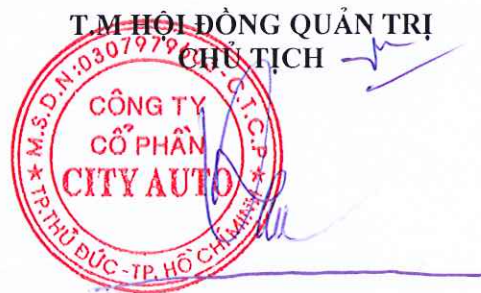 T.M HỘI ĐỒNG QUẢN TRỊ
CHỦ TỊCH
M.S.D.N:
C.T.C.P
CÔNG TY
CỔ PHẦN
CITY AUTO
TP.THỦ ĐỨC -TP. HỒ CHÍ MINH